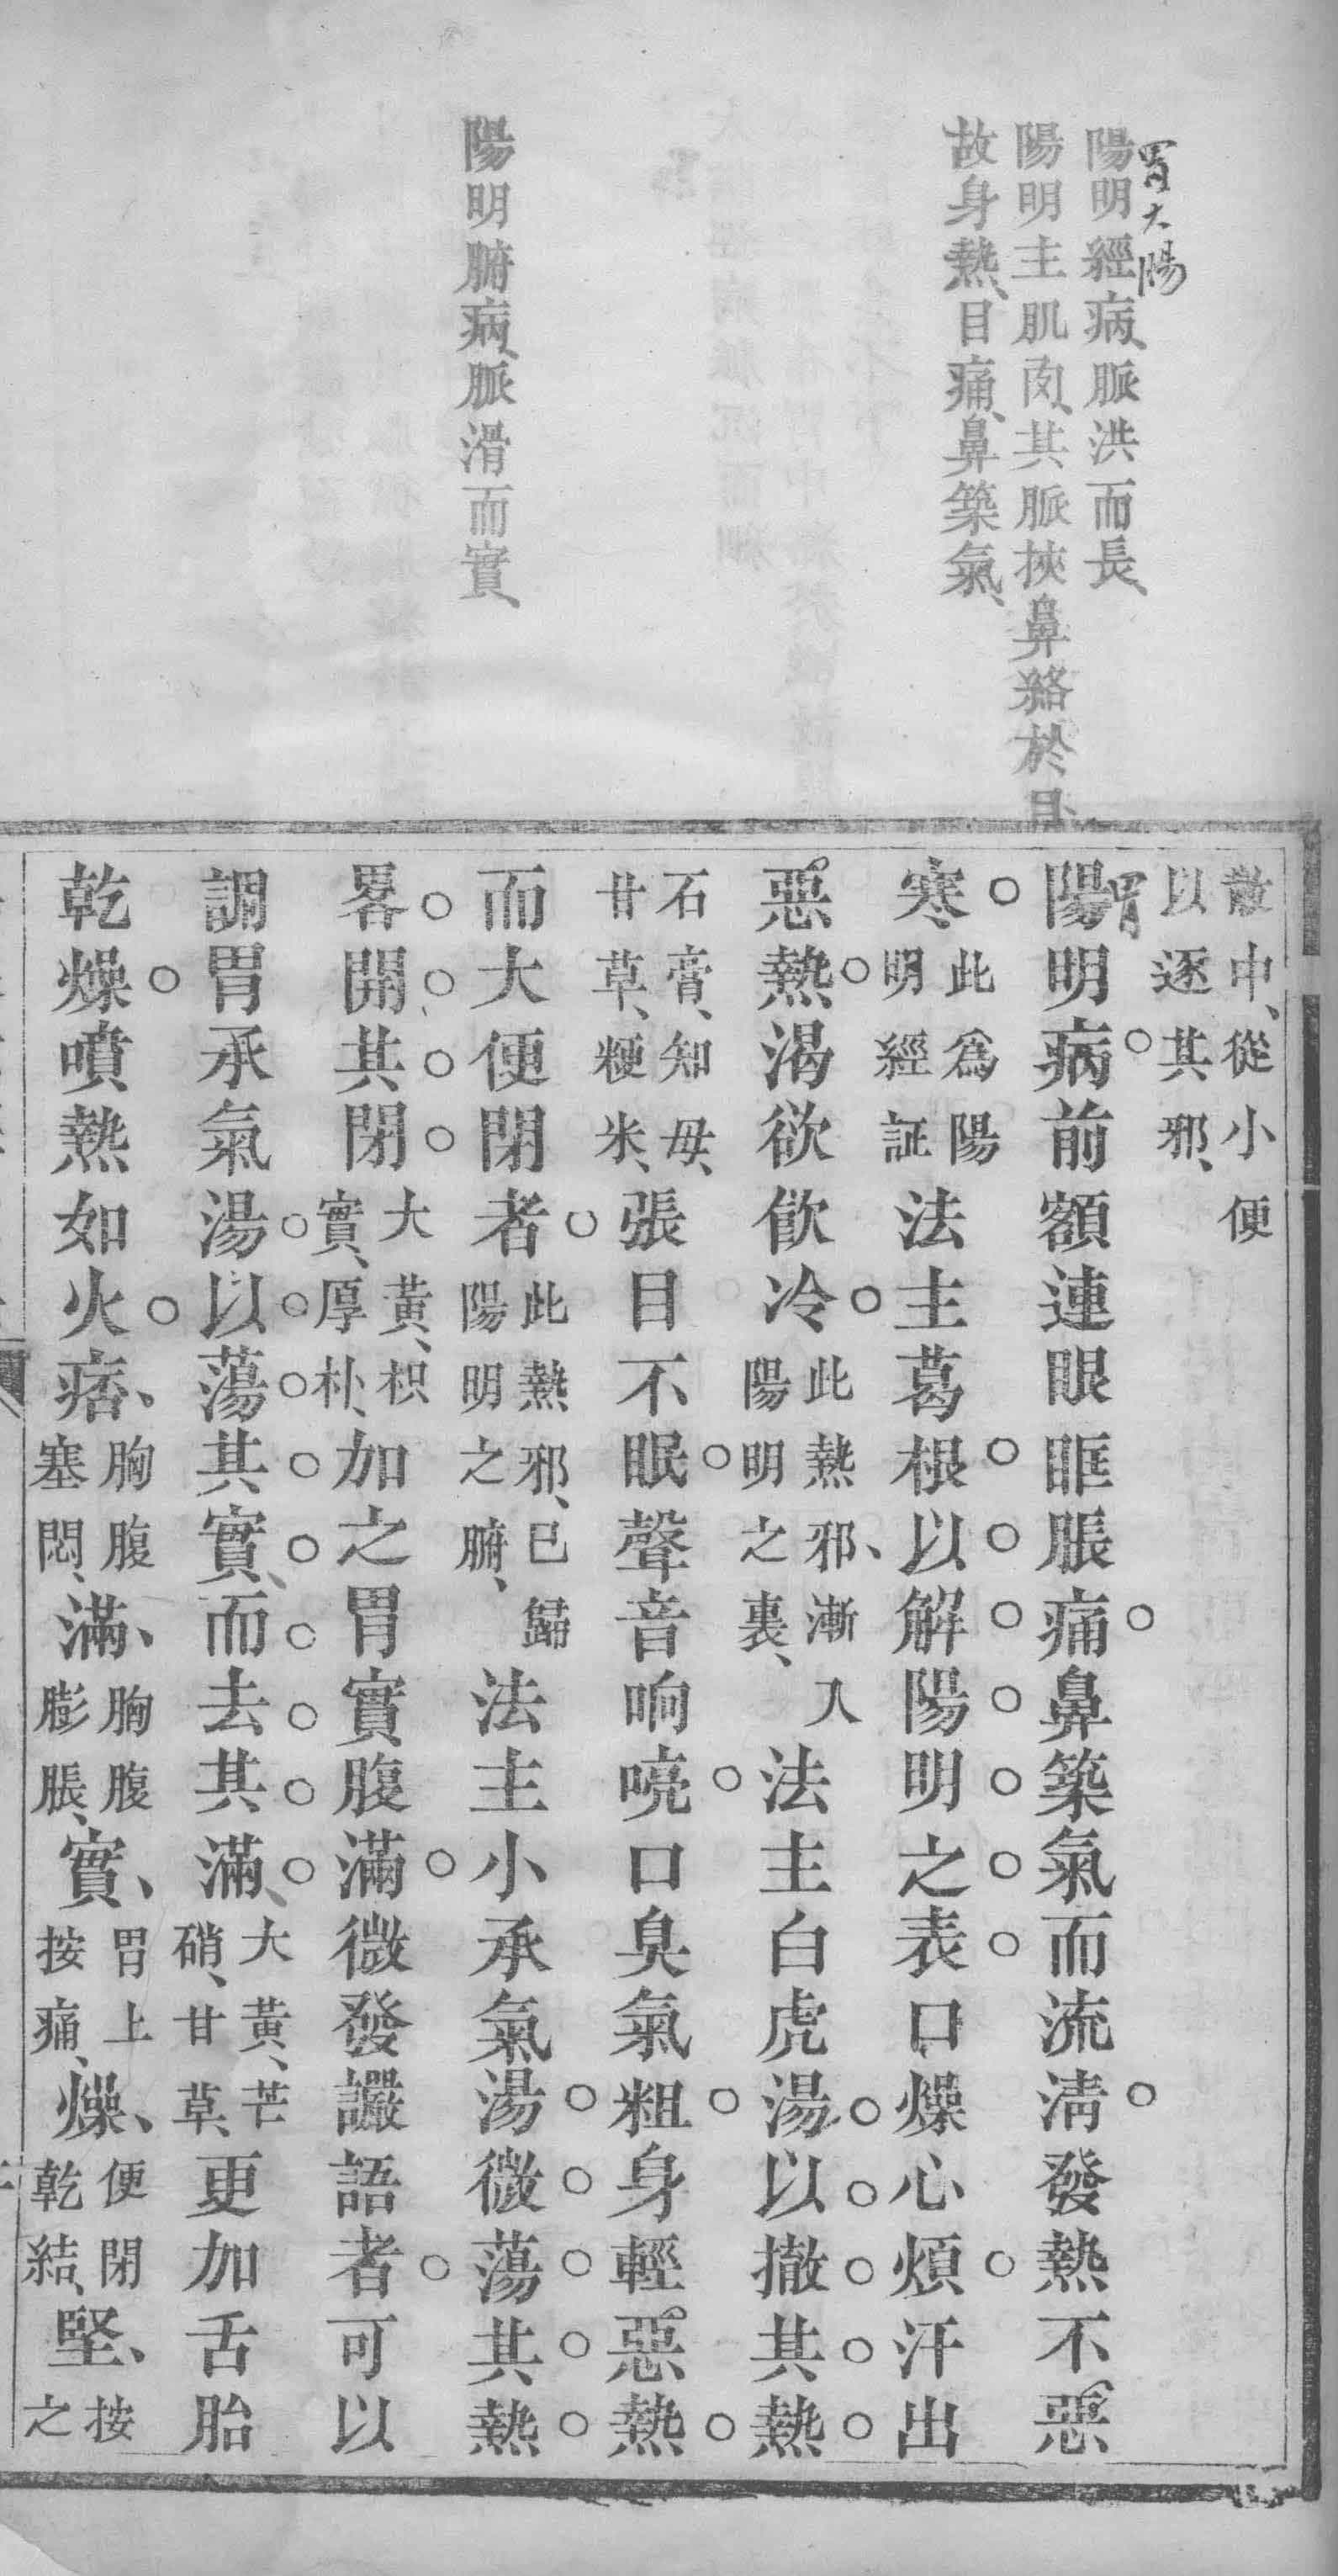 胃大腸
陽明經病、脈洪而長、
陽明主肌肉、其脈挾鼻絡於目、
故身熱、目痛、鼻築氣、
陽明腑病、脈滑而實、
散中、從小便
以逐其邪、
胃
陽明病。前額連眼眶脹痛。鼻築氣而流清。發熱不惡
寒。此爲陽明經証法主葛根。以。解。陽。明。之。表。口燥心煩。汗出
惡熱。渴欲飲冷。此熱邪、漸入陽明之裏、法主白虎湯。以。撤。其。熱。
石膏、知母、甘草、粳米、張目不眠。聲音响喨。口臭氣粗。身輕惡熱。
而大便閉者。此熱邪、已歸陽明之腑、法主小承氣湯。微。蕩。其。熱。
畧。開。其。閉。大黃、枳實、厚朴、加之胃實腹滿。微發讝語者。可以
調胃承氣湯。以。蕩。其。實、。而。去。其。滿、。大黃、芒硝、甘草、更加舌胎
乾燥。噴熱如火。痞、胸腹塞悶、滿、胸腹膨脹、實、胃上按痛、燥、便閉乾結、堅、按之